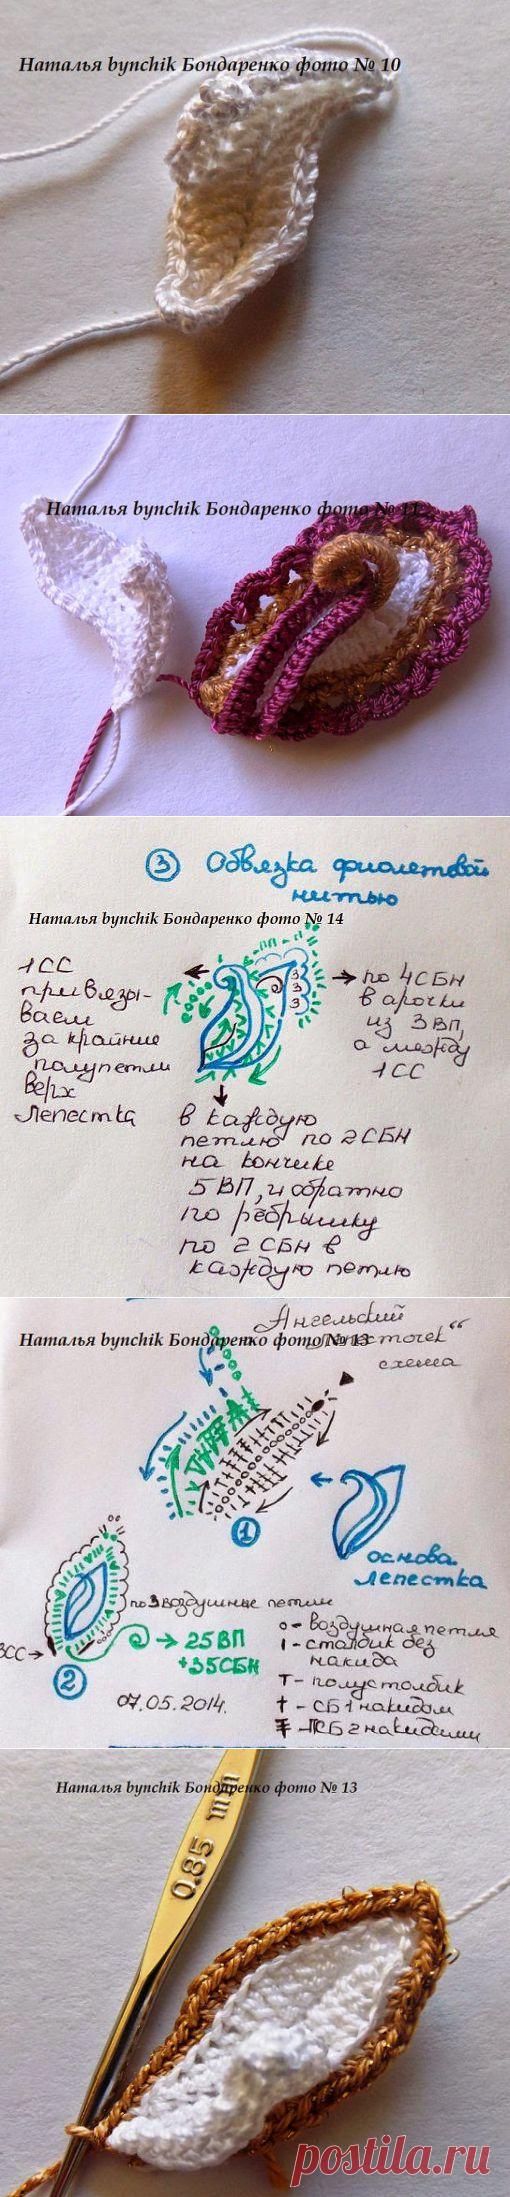 Наталья bynchik Бондаренко фото № 10
Наталья bynchik Бондаренко фото № 11
③ Обвязка фиолетовой
нитью
Наталья bynchik Бондаренко фото № 14
1СС
привязы-
ваем
за крайние
полупетли
верх
лепестка
по 4СБН
в арочки
из 3ВП,
а между
1СС
3
3
3
в каждую
петлю по 2СБН
на кончике
5ВП, и обратно
по рёбрышку
по 2 СБН в
каждую петлю
„Ангельский
Наталья bynchik Бондаренко фото № 13
лепесточек“
схема
1
основа
лепестка
по 3 воздушные петли
3СС
→ 25ВП
+35СБН
2
07.05.2014.
о - воздушная петля
ı - столбик без
накида
т - полустолбик
† - СБ 1 накидом
- СБ 2 накидами
Наталья bynchik Бондаренко фото № 13
0.85 mm
postila.ru